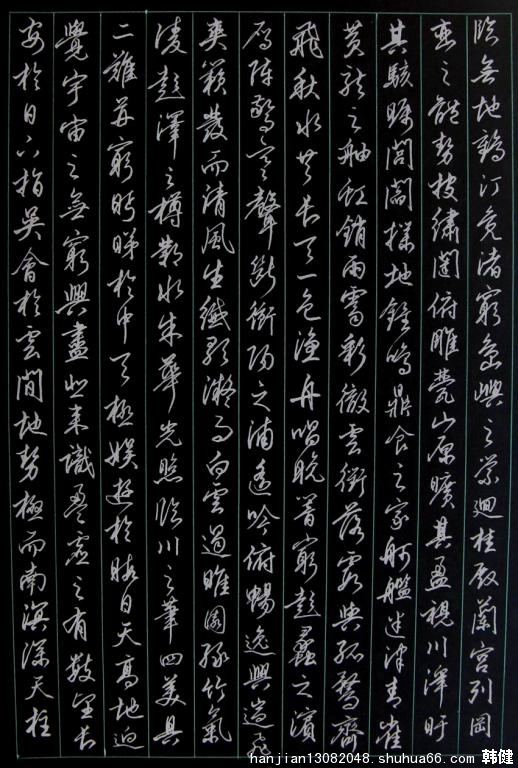 臨無地鶴汀鳧渚窮島嶼之縈迴桂殿蘭宮列岡
巒之體勢披繡闥俯雕甍山原曠其盈視川澤盱
其駭矚閭閻撲地鍾鳴鼎食之家舸艦迷津青雀
黃龍之舳虹銷雨霽彩徹雲衢落霞與孤鶩齊
飛秋水共長天一色漁舟唱晚響窮彭蠡之濱
雁陣驚寒聲斷衡陽之浦遙吟俯暢逸興遄飛
爽籟發而清風生纖歌凝而白雲遏睢園綠竹氣
凌彭澤之樽鄴水朱華光照臨川之筆四美具
二難并窮眄睇於中天極娛遊於暇日天高地迥
覺宇宙之無窮興盡悲來識盈虛之有數望長
安於日下指吳會於雲間地勢極而南溟深天柱
hanjian13082048.shuhua66.com 韩健